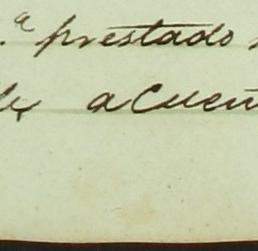 .ª prestado
acuen